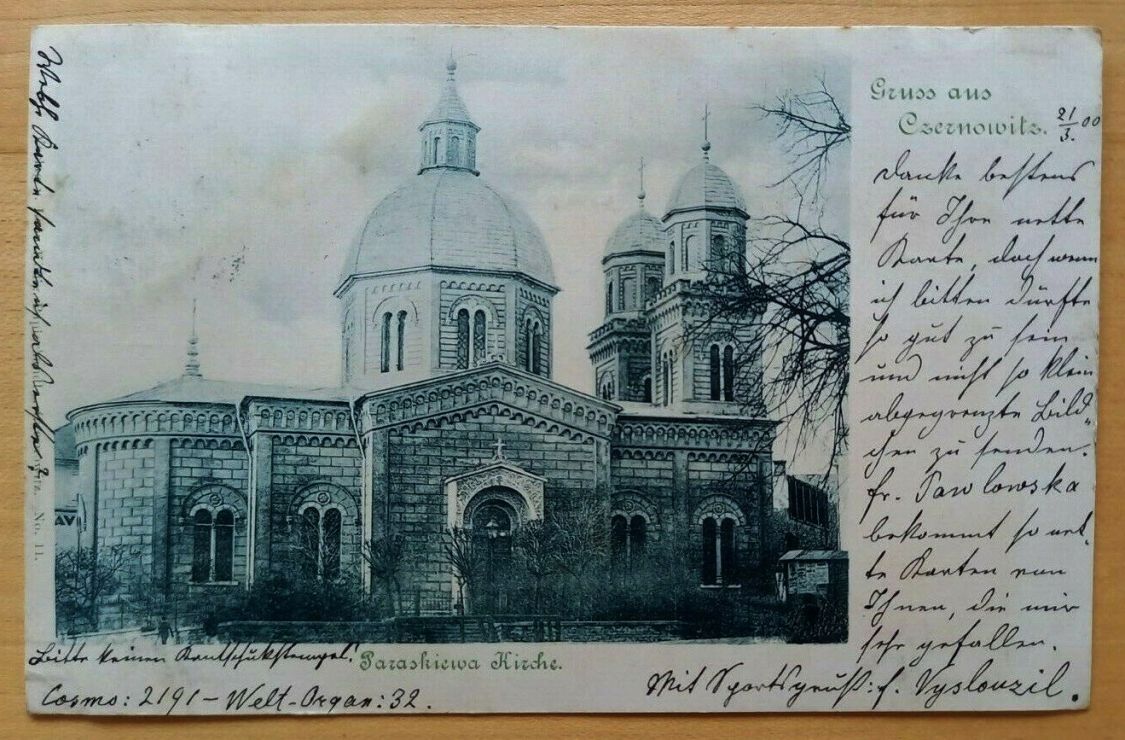 Gruss aus
Czernowitz.
21/3. 00
Danke bestens
für Ihre nette
Karte, doch wenn
ich bitten dürfte
so gut zu sein
und nicht so klein
abgegrenzte Bild-
chen zu senden.
Fr. Pawlowska
bekommt so net-
te Karten von
Ihnen, die mir
sehr gefallen.
Mit Sportsgruß: f. Vyslouzil.
Paraskiewa Kirche.
Bitte keinen Kautschukstempel!
Cosmo: 2191 – Welt-Organ: 32.
Karte
No. 11.